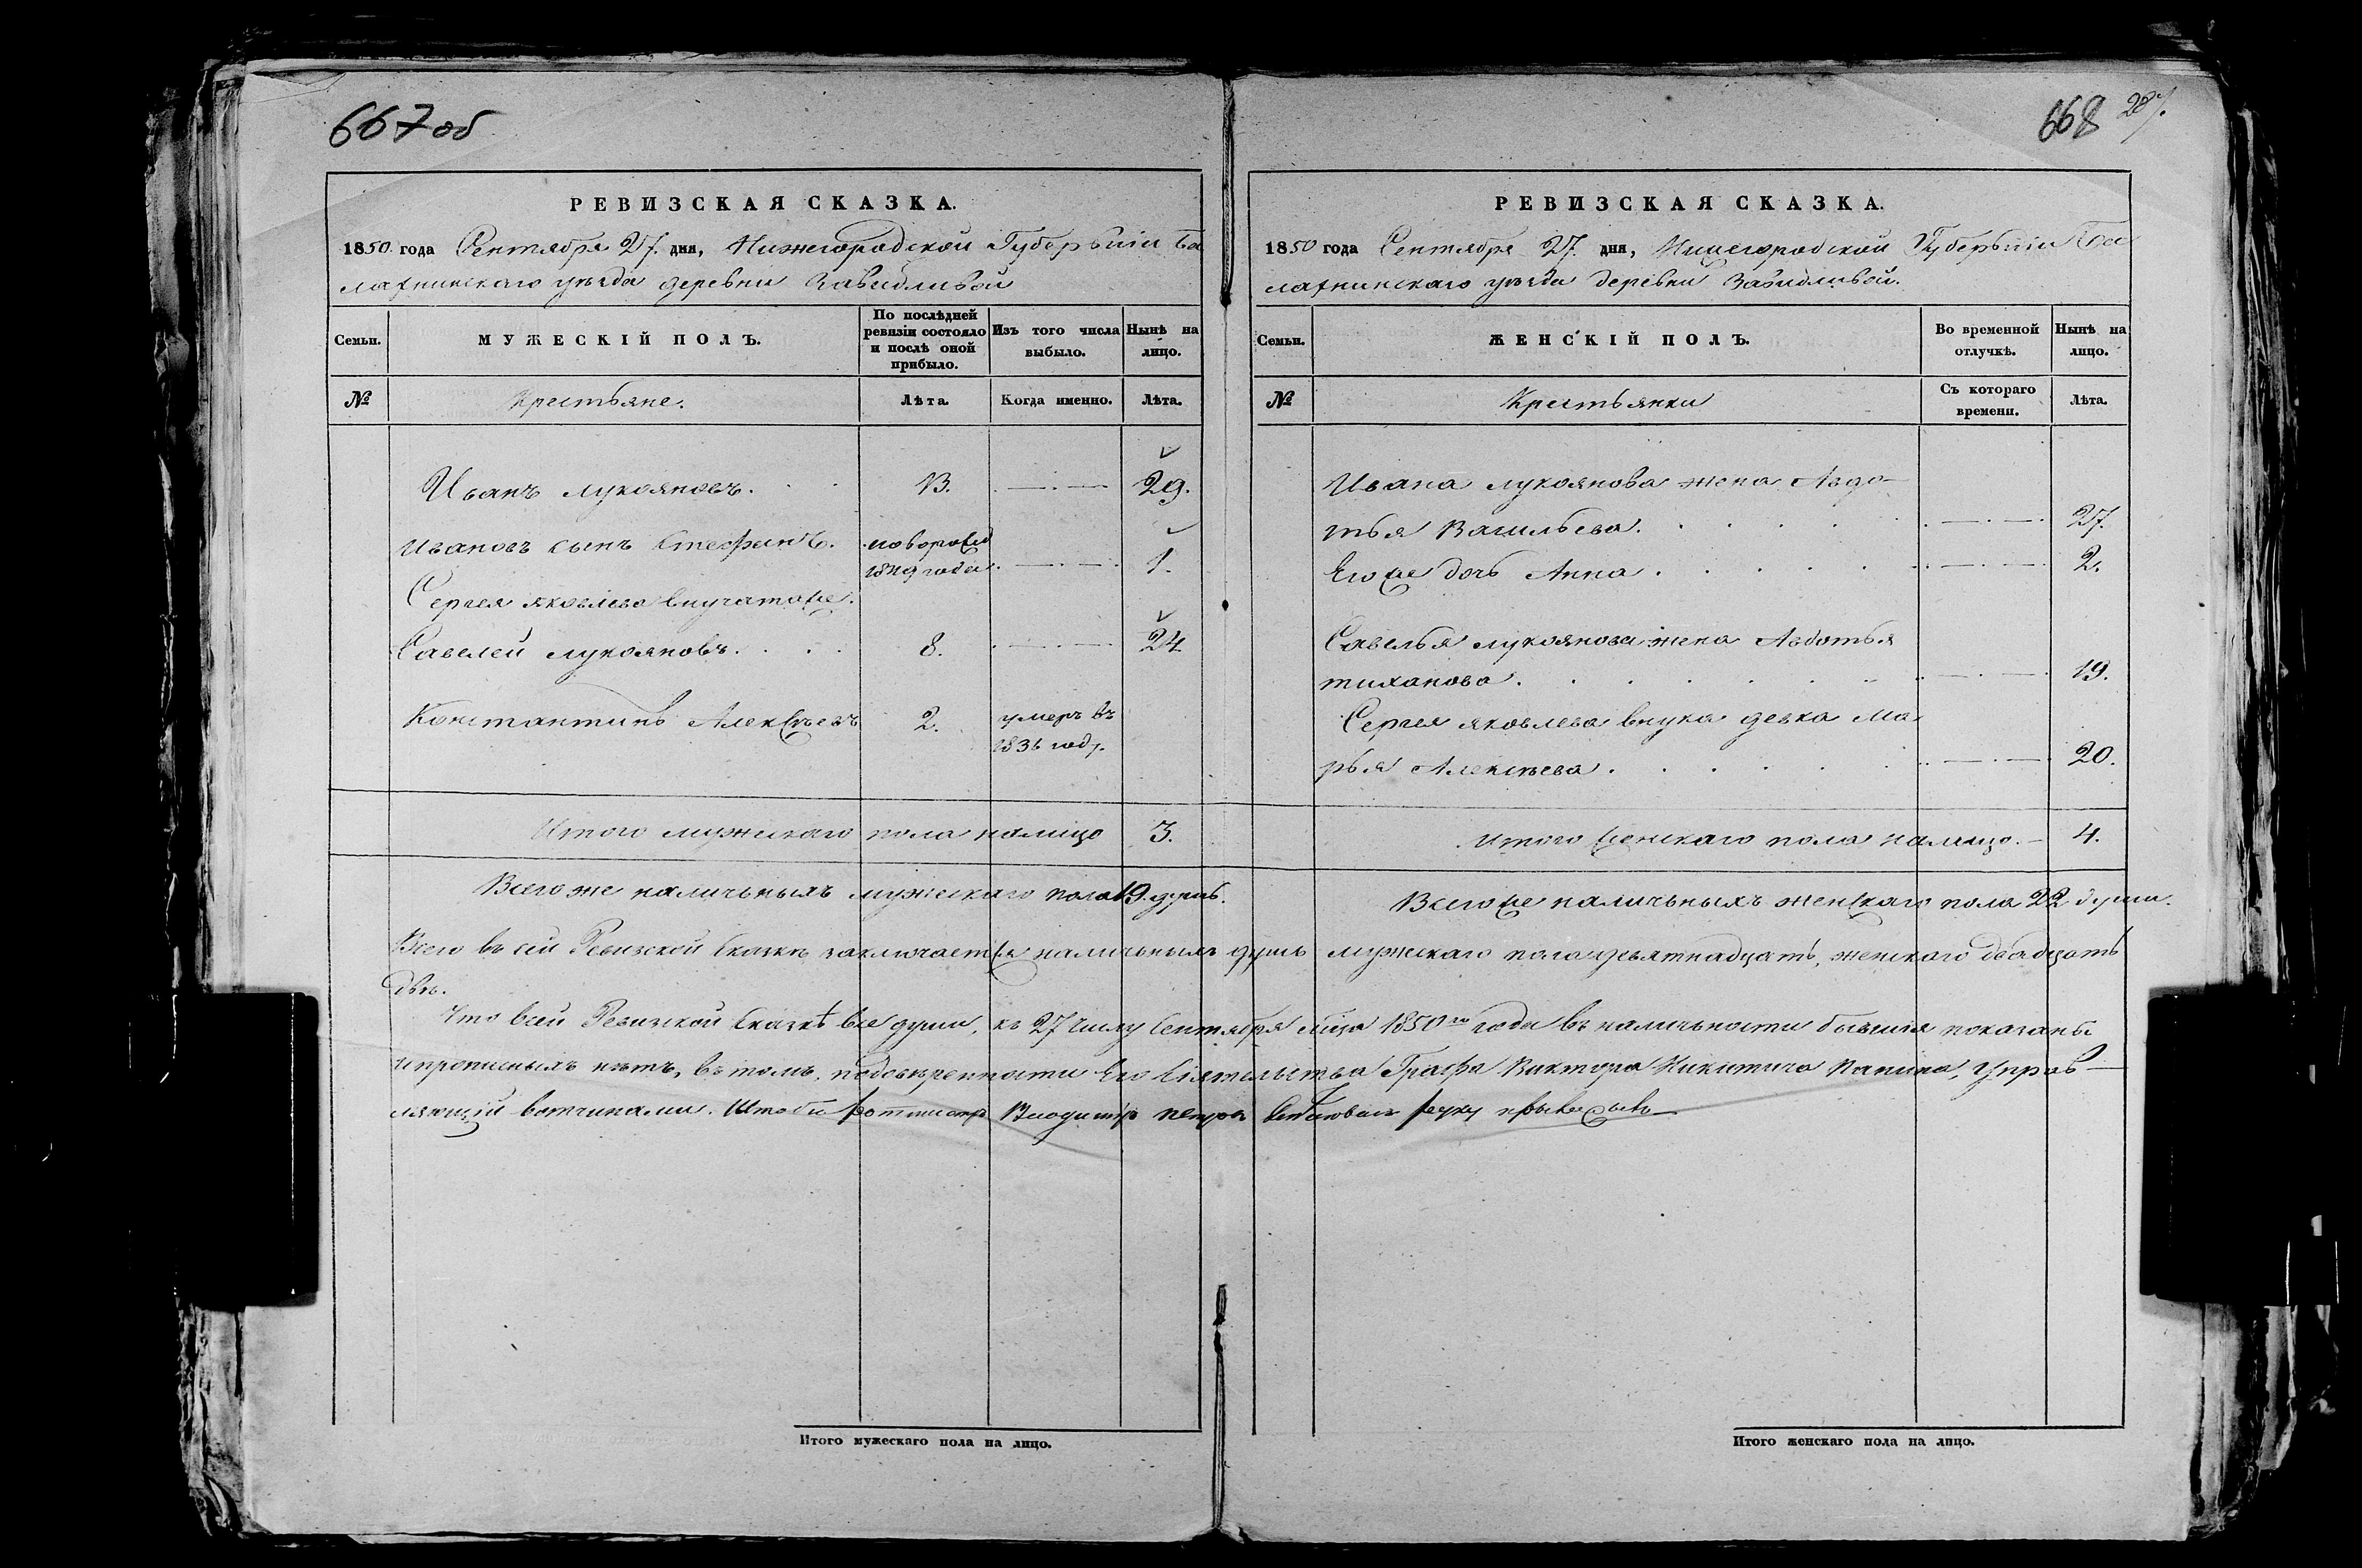 667 об
РЕВИЗСКАЯ СКАЗКА.
1850 года Сентября 27. дня, Нижегородской Губерьніи Ба
лахнинскаго уѣзда деревни Завидливой
Семьи.
МУЖЕСКІЙ ПОЛЪ.
По послѣдней ревизіи состояло и послѣ оной прибыло.
Изъ того числа выбыло.
Нынѣ на лицо.
№
Крестьяне.
Лѣта.
Когда именно.
Лѣта.
Иванъ Лукояновъ. 13. 29.
Ивановъ сынъ Стефанъ. новорожд
1849 года. 1.
Сергея Яковлева внучатоже.
Савелей Лукояновъ. 8. 24
Константинъ Алексѣевъ 2. умеръ въ
1836 году.
Итого мужескаго пола налицо 3.
Всего же наличьныхъ мужескаго пола 19. душь.
668 287.
РЕВИЗСКАЯ СКАЗКА.
1850 года Сентября 27. дня, Нижегородской Губерьніи Ба
лахнинскаго уѣзда деревни Завидливой.
Семьи.
ЖЕНСКІЙ ПОЛЪ.
Во временной отлучкѣ.
Нынѣ на лицо.
№
Крестьянки
Съ котораго времени.
Лѣта.
Ивана Лукоянова жена Авдо-
тья Васильева. 27.
Его же дочь Анна. 2.
Савелья Лукоянова жена Авдотья
Тиханова. 19.
Сергея Яковлева внука девка Ма-
рья Алексѣева. 20.
Итого женскаго пола налицо. 4.
Всего же наличьныхъ женскаго пола 22 души.
Всего въ сей Ревизской Сказкѣ заключается наличьныхъ душь мужескаго пола девятнадцать, женскаго двадцать
двѣ.
Что всей Ревизской Сказкѣ все души, къ 27 числу Сентября м-ца 1850го года въ наличьности бывшія показаны
и прописныхъ нѣтъ, въ томъ, по довѣренности Его Сіятельства Графа Виктора Никитича Панина, Управ-
ляющій вотчинами. Штабъ ротмистръ Владиміръ Петровъ руку
Итого мужескаго пола на лицо.
Итого женскаго пола на лицо.